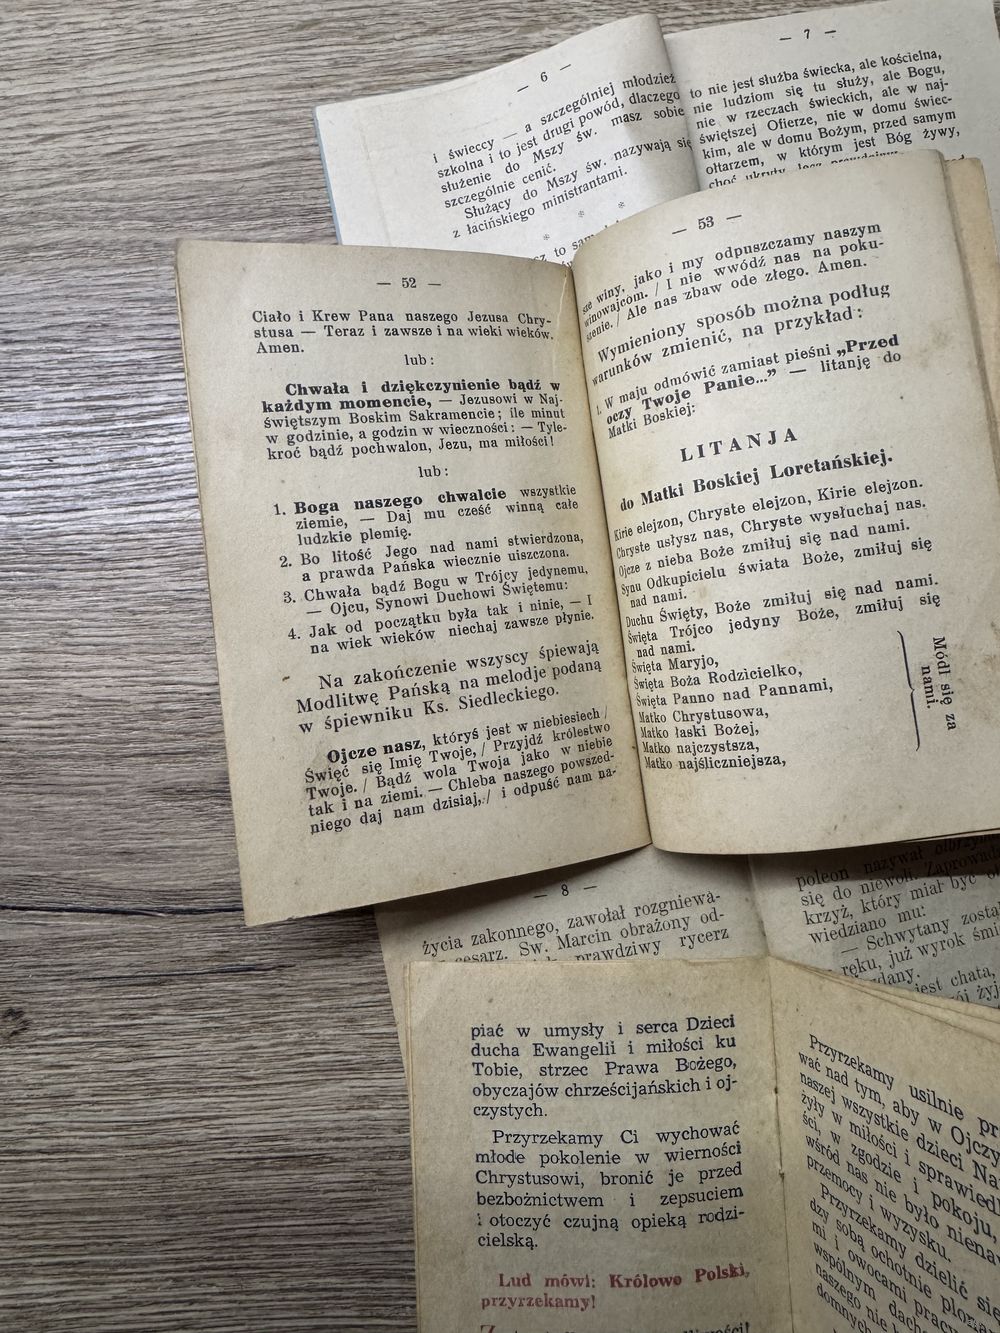 — 6 —
i świeccy — a szczególniej młodzież
szkolna i to jest drugi powód, dlaczego
służenie do Mszy św. masz sobie
szczególnie cenić.
Służący do Mszy św. nazywają się
z łacińskiego ministrantami.
* * *
— 7 —
to nie jest służba świecka, ale kościelna,
nie ludziom się tu służy, ale Bogu,
nie w rzeczach świeckich, ale w naj-
świętszej Ofierze, nie w domu świec-
kim, ale w domu Bożym, przed samym
ołtarzem, w którym jest Bóg żywy,
choć ukryty
— 52 —
Ciało i Krew Pana naszego Jezusa Chry-
stusa — Teraz i zawsze i na wieki wieków.
Amen.
lub:
Chwała i dziękczynienie bądź w
każdym momencie, — Jezusowi w Naj-
świętszym Boskim Sakramencie; ile minut
w godzinie, a godzin w wieczności: — Tyle-
kroć bądź pochwalon, Jezu, ma miłości!
lub:
1. Boga naszego chwalcie wszystkie
ziemie, — Daj mu cześć winną całe
ludzkie plemię.
2. Bo litość Jego nad nami stwierdzona,
a prawda Pańska wiecznie uiszczona.
3. Chwała bądź Bogu w Trójcy jedynemu,
— Ojcu, Synowi Duchowi Świętemu:
4. Jak od początku była tak i ninie, — I
na wiek wieków niechaj zawsze płynie.
Na zakończenie wszyscy śpiewają
Modlitwę Pańską na melodje podaną
w śpiewniku Ks. Siedleckiego.
Ojcze nasz, któryś jest w niebiesiech /
Święć się Imię Twoje, / Przyjdź królestwo
Twoje. / Bądź wola Twoja jako w niebie
tak i na ziemi. — Chleba naszego powszed-
niego daj nam dzisiaj, / i odpuść nam na-
— 53 —
sze winy, jako i my odpuszczamy naszym
winowajcom. / I nie wwódź nas na poku-
szenie. / Ale nas zbaw ode złego. Amen.
Wymieniony sposób można podług
warunków zmienić, na przykład:
1. W maju odmówić zamiast pieśni „Przed
oczy Twoje Panie...” — litanję do
Matki Boskiej:
LITANJA
do Matki Boskiej Loretańskiej.
Kirie elejzon, Chryste elejzon, Kirie elejzon.
Chryste usłysz nas, Chryste wysłuchaj nas.
Ojcze z nieba Boże zmiłuj się nad nami.
Synu Odkupicielu świata Boże, zmiłuj się
nad nami.
Duchu Święty, Boże zmiłuj się nad nami.
Święta Trójco jedyny Boże, zmiłuj się
nad nami.
Święta Maryjo,
Święta Boża Rodzicielko,
Święta Panno nad Pannami,
Matko Chrystusowa,
Matko łaski Bożej,
Matko najczystsza,
Matko najśliczniejsza,
Módl się za
nami.
— 8 —
życia zakonnego, zawołał rozgniewa-
cesarz. Sw. Marcin obrażony od-
prawdziwy rycerz
poleon nazywał olbrzym
się do niewoli. Zaprowad
krzyż, który miał być
wiedziano mu:
— Schwytany został
ręku, już wyrok
jest chata,
piać w umysły i serca Dzieci
ducha Ewangelii i miłości ku
Tobie, strzec Prawa Bożego,
obyczajów chrześcijańskich i oj-
czystych.
Przyrzekamy Ci wychować
młode pokolenie w wierności
Chrystusowi, bronić je przed
bezbożnictwem i zepsuciem
i otoczyć czujną opieką rodzi-
cielską.
Lud mówi: Królowo Polski,
przyrzekamy!
Przyrzekamy usilnie pr
wać nad tym, aby w Ojczy
naszej wszystkie dzieci Na
żyły w miłości i sprawiedl
ści, w zgodzie i pokoju,
wśród nas nie było nienaw
przemocy i wyzysku.
Przyrzekamy dzielić się
dzy sobą ochotnie plona
mi i owocami pracy
wspólnym dach
naszego nie
domnych